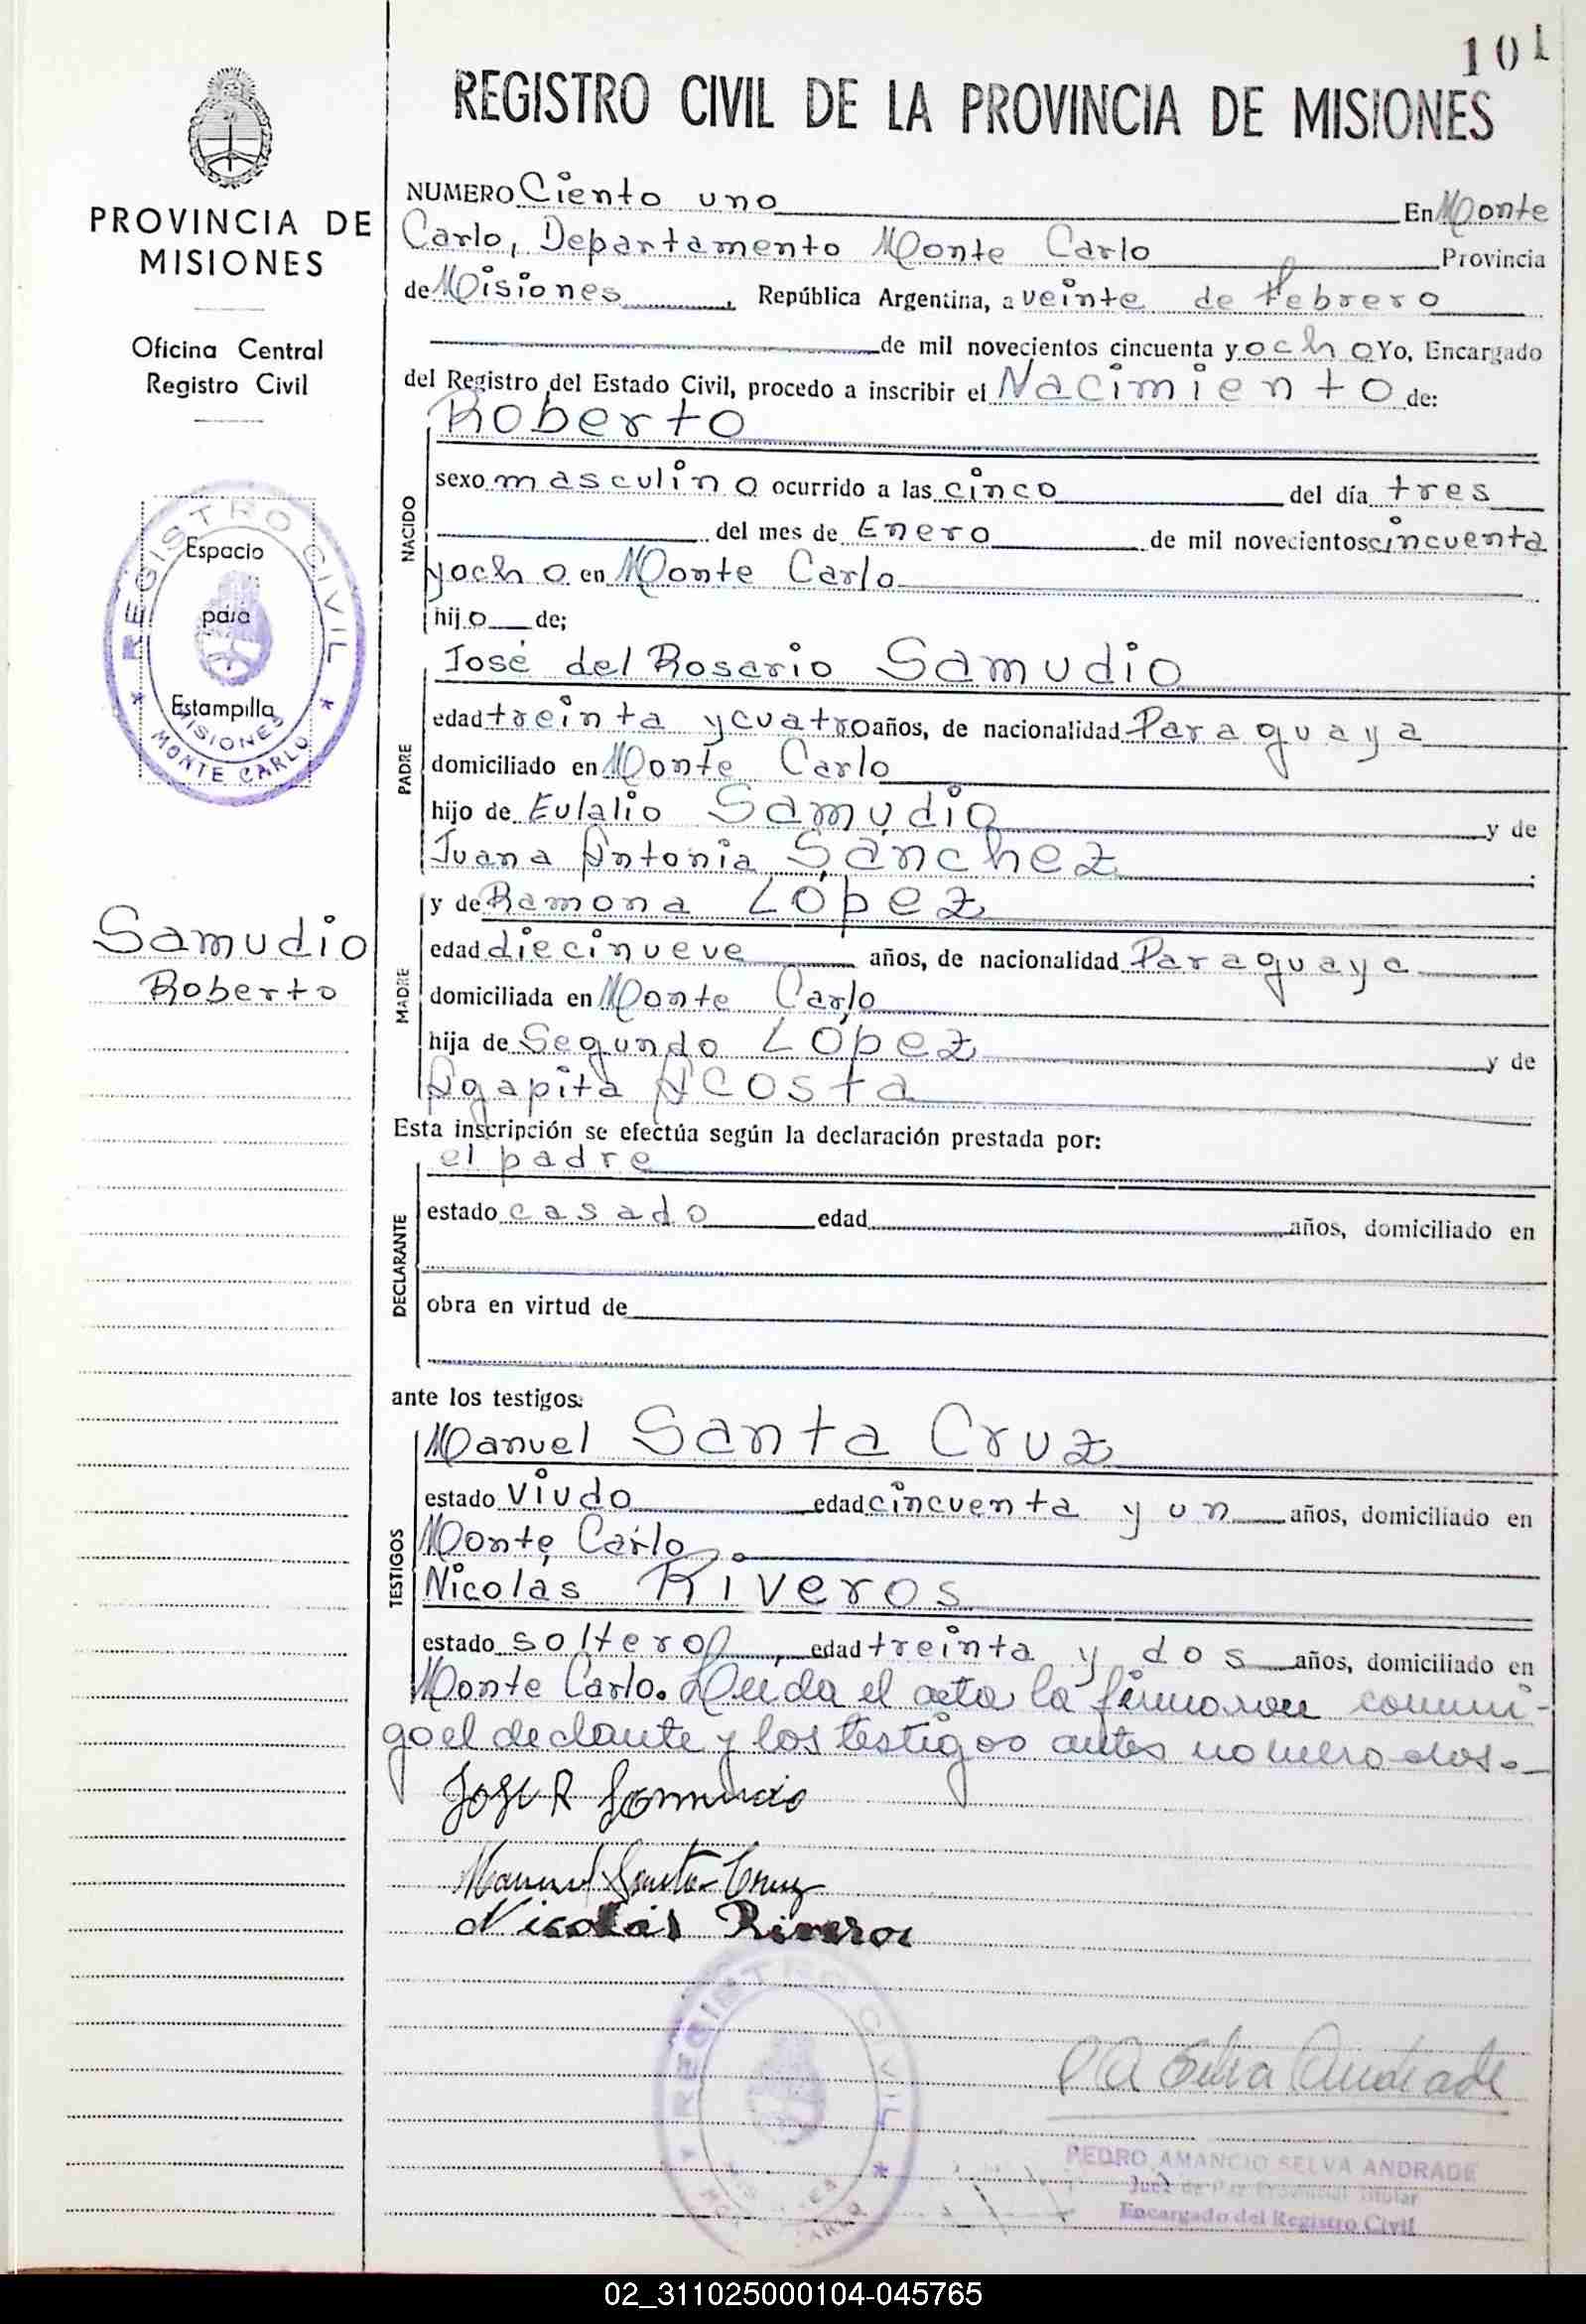 101
REGISTRO CIVIL DE LA PROVINCIA DE MISIONES
PROVINCIA DE
MISIONES
Oficina Central
Registro Civil
REGISTRO CIVIL
Espacio
para
Estampilla
MISIONES
MONTE CARLO
Samudio
Roberto
NUMERO Ciento uno En Monte
Carlo, Departamento Monte Carlo Provincia
de Misiones, República Argentina, a veinte de Febrero
de mil novecientos cincuenta y ocho Yo, Encargado
del Registro del Estado Civil, procedo a inscribir el Nacimiento de:
Roberto
NACIDO
sexo masculino ocurrido a las cinco del día tres
del mes de Enero de mil novecientos cincuenta
y ocho en Monte Carlo
hijo de;
José del Rosario Samudio
PADRE
edad treinta y cuatro años, de nacionalidad Paraguaya
domiciliado en Monte Carlo
hijo de Eulalio Samudio y de
Juana Antonia Sánchez
y de Ramona López
MADRE
edad diecinueve años, de nacionalidad Paraguaya
domiciliada en Monte Carlo
hija de Segundo López y de
Agapita Acosta
Esta inscripción se efectúa según la declaración prestada por:
el padre
DECLARANTE
estado casado edad años, domiciliado en
obra en virtud de
ante los testigos:
Manuel Santa Cruz
TESTIGOS
estado Viudo edad cincuenta y un años, domiciliado en
Monte Carlo,
Nicolás Riveros
estado soltero, edad treinta y dos años, domiciliado en
Monte Carlo. Leída el acta la firmaron conmi-
go el declante y los testigos antes nomerados.
José R Samudio
Manuel Santa Cruz
Nicolás Riveros
REGISTRO CIVIL
CARLO
P A Selva Andrade
PEDRO AMANCIO SELVA ANDRADE
Juez de Paz Provincial Titular
Encargado del Registro Civil
02_311025000104-045765